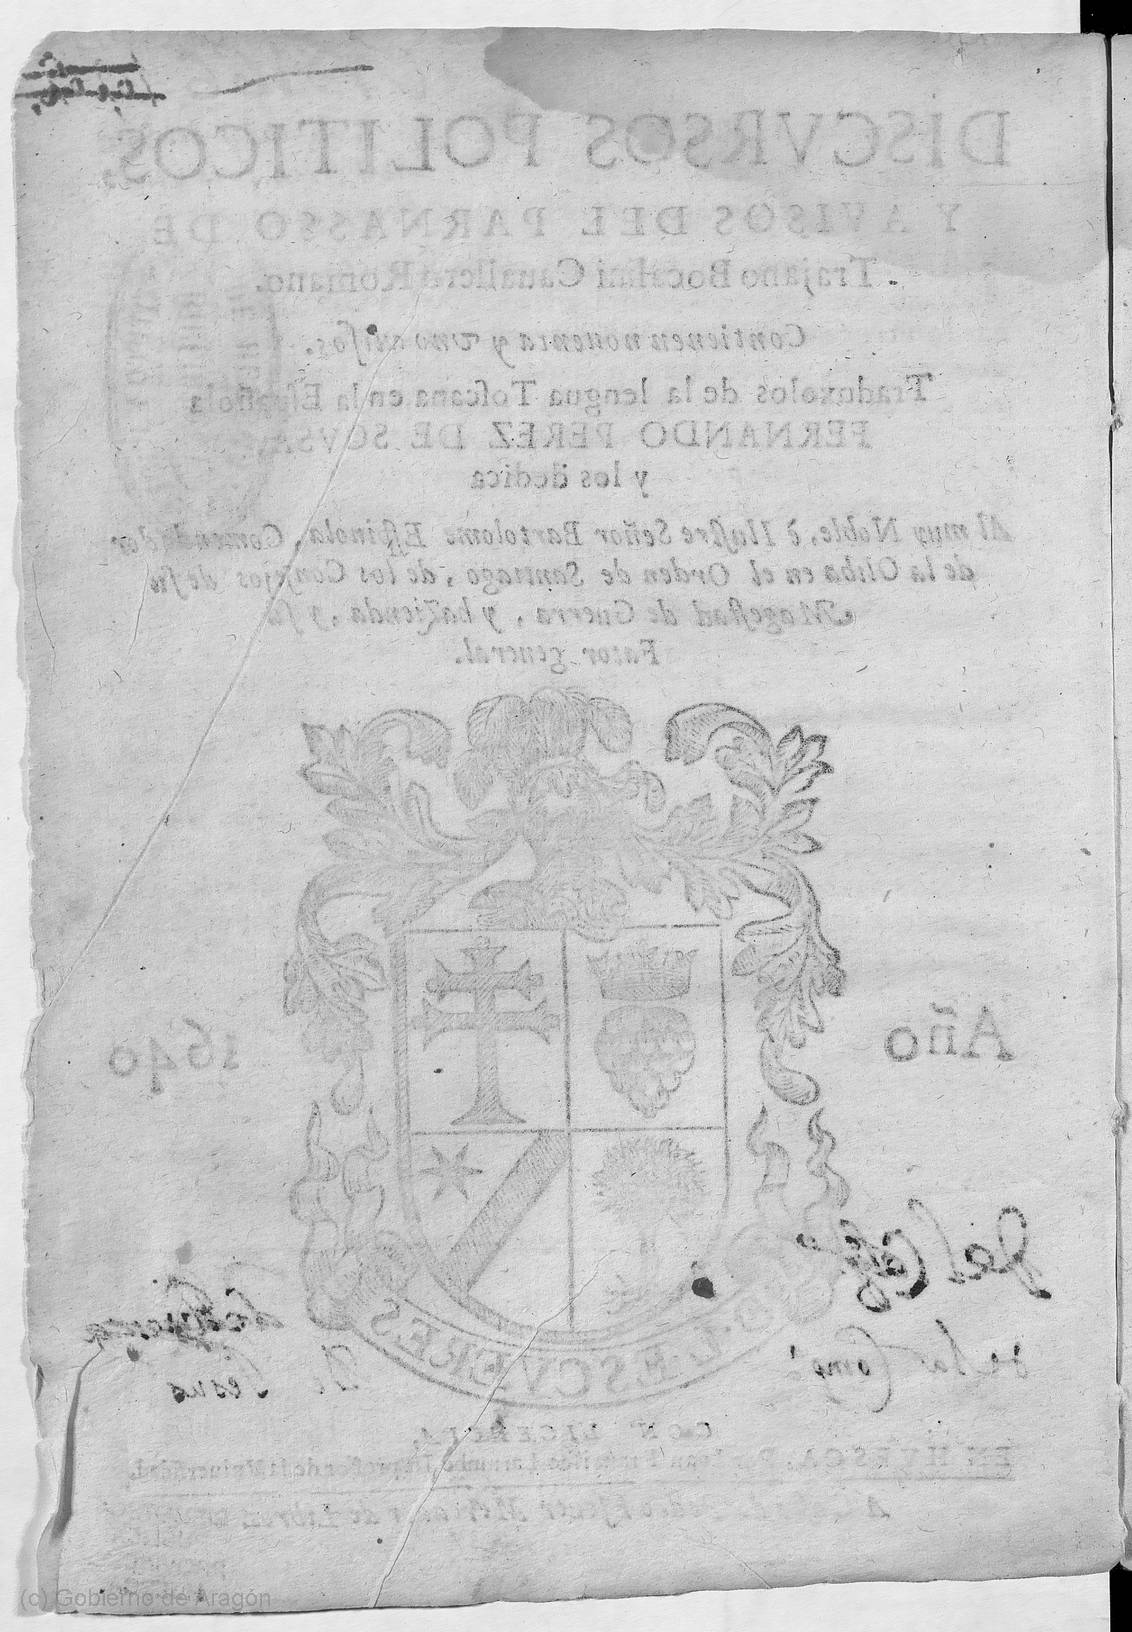 DISCVRSOS POLITICOS,
Y AVISOS DEL PARNASSO DE
Trajano Bocalini Cauallero Romano.
Contienen nouenta y vno auisos.
Traduxolos de la lengua Toscana en la Española
FERNANDO PEREZ DE SOVSA
y los dedica
Al muy Noble, è Ilustre Señor Bartolome Espinola, Comendador
de la Oliba en el Orden de Santiago, de los Consejos de su
Magestad de Guerra, y hazienda, y su
Fator general.
Año 1640
Del Colegio
de la Comp.ª De Jesus
CON LICENCIA,
EN HVESCA, Por Iuan Francisco Larumbe, Impressor de la Vniuersidad.
Mercader de Libros
(c) Gobierno de Aragón